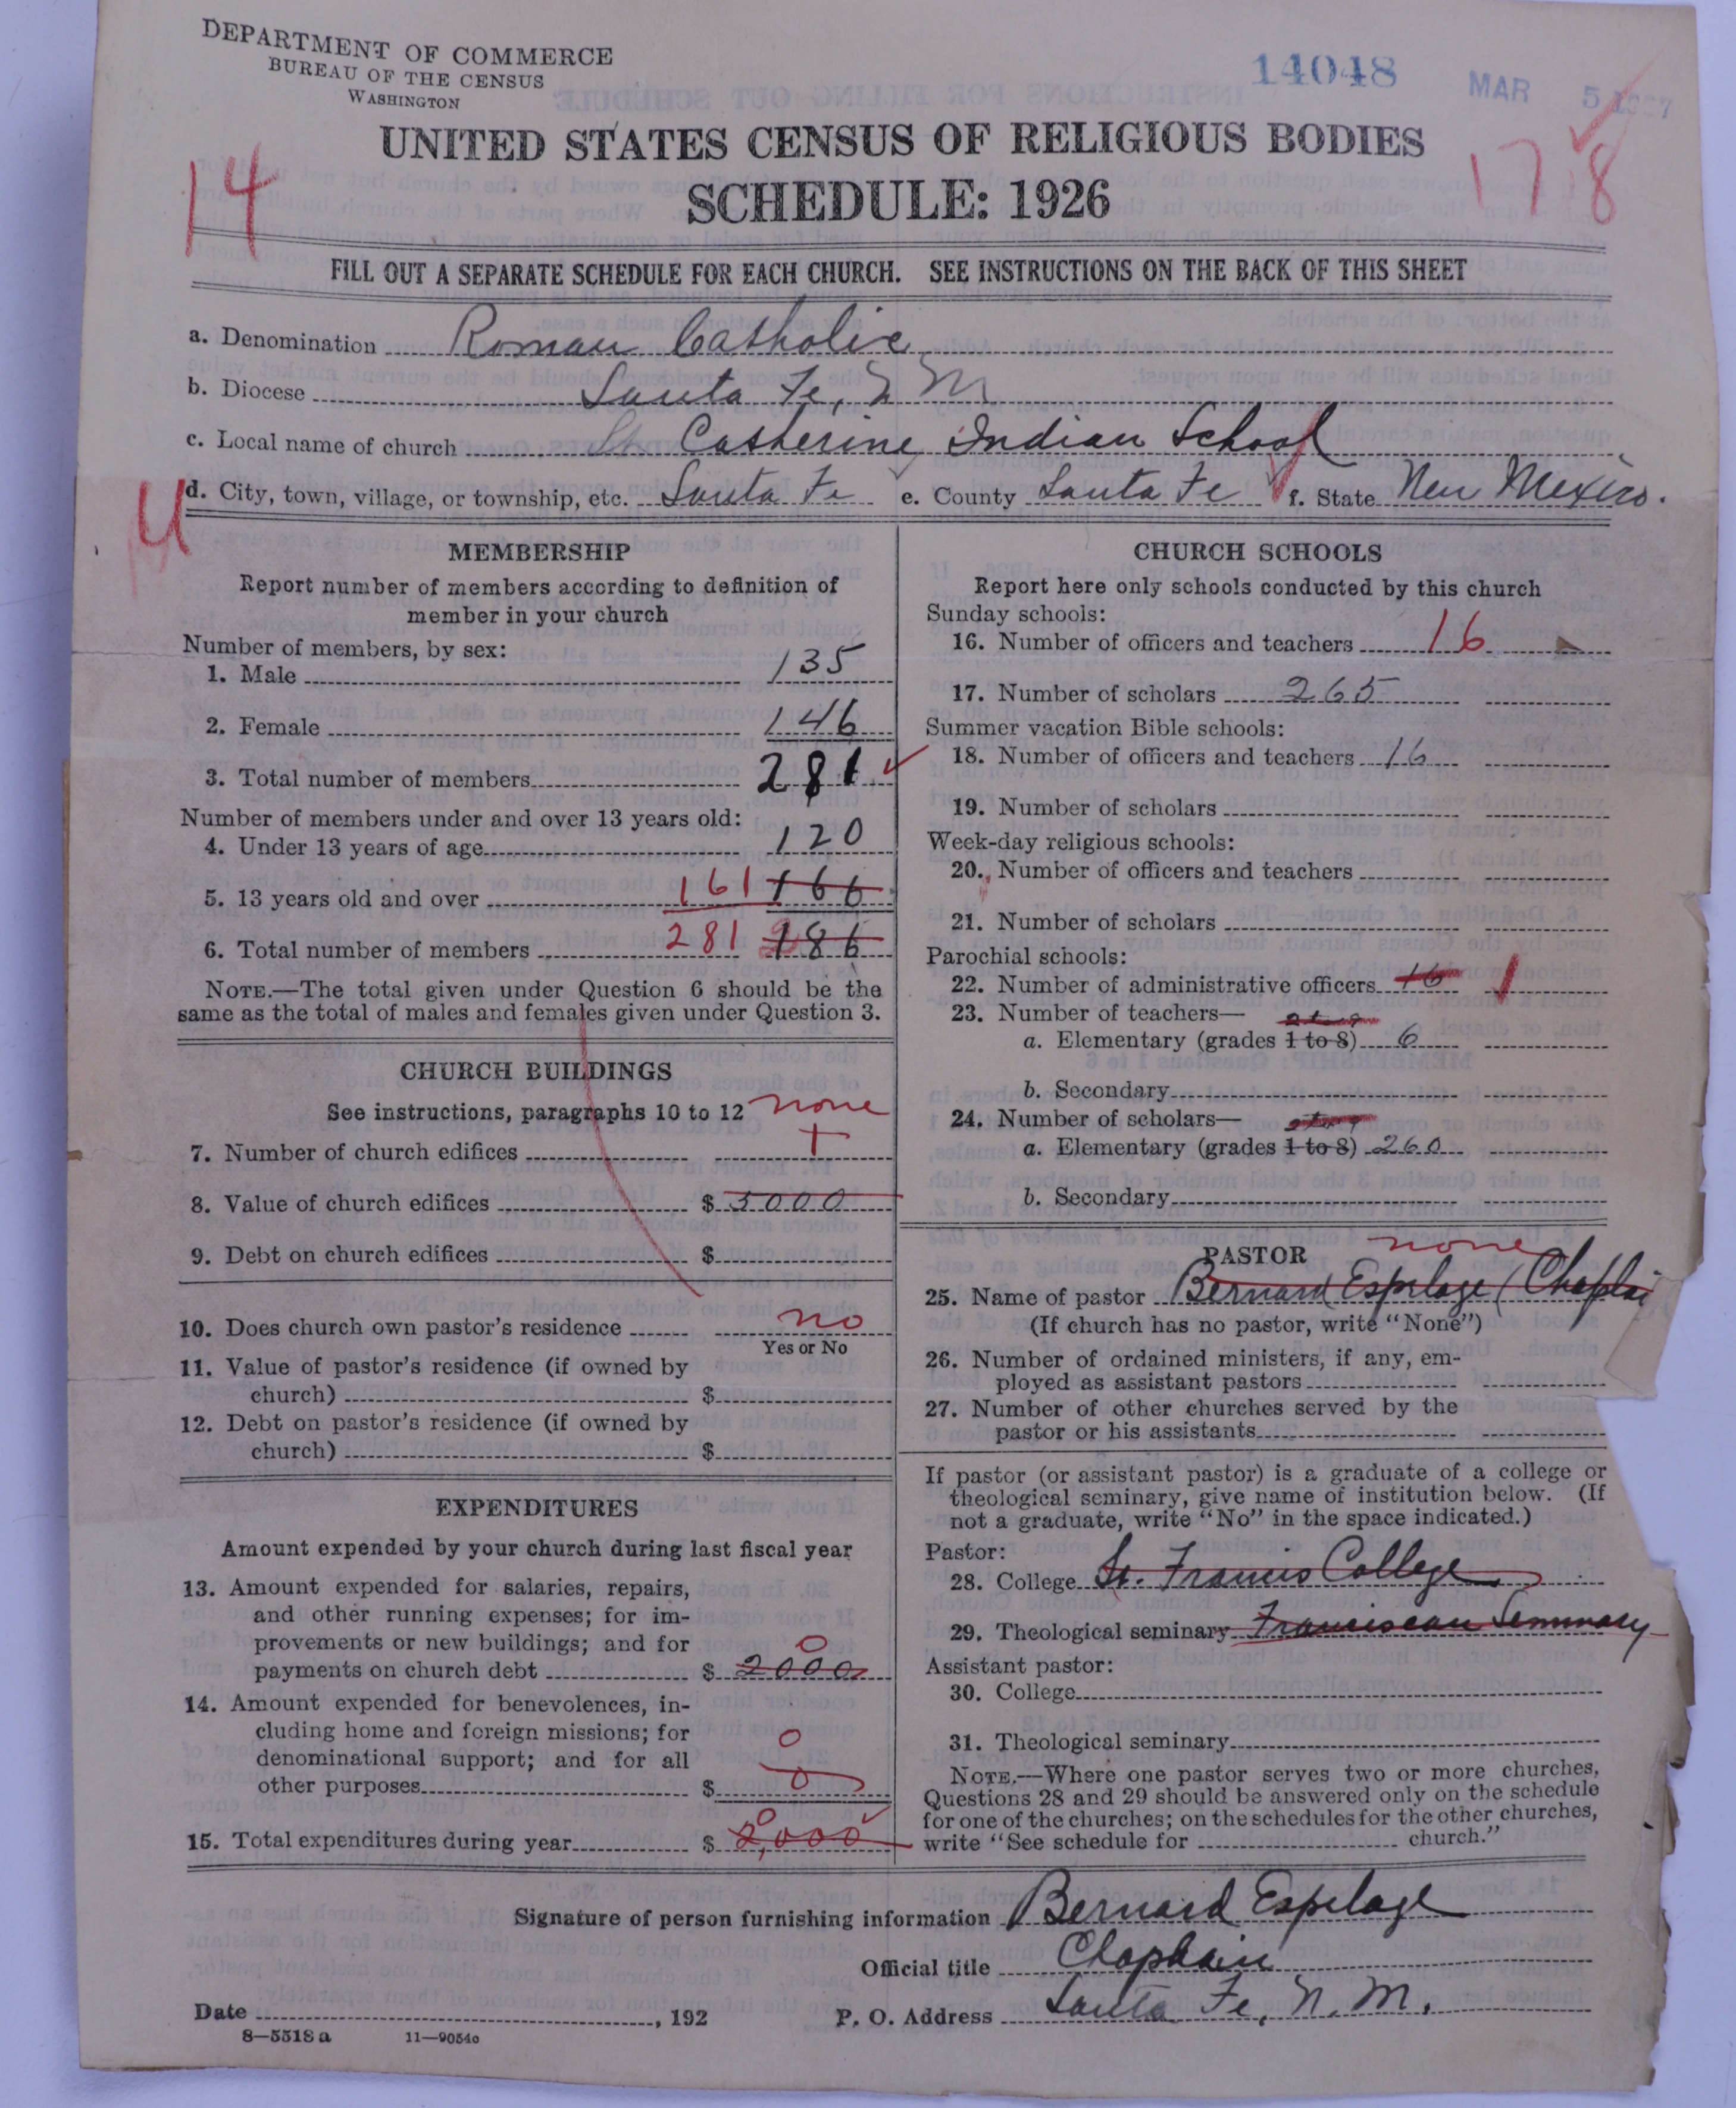 DEPARTMENT OF COMMERCE
BUREAU OF THE CENSUS
WASHINGTON
14048
MAR 5 1927
UNITED STATES CENSUS OF RELIGIOUS BODIES
SCHEDULE: 1926
14
178
FILL OUT A SEPARATE SCHEDULE FOR EACH CHURCH. SEE INSTRUCTIONS ON THE BACK OF THIS SHEET
a. Denomination Roman Catholic
b. Diocese Santa Fe, N M
c. Local name of church St. Catherine Indian School
d. City, town, village, or township, etc. Santa Fe e. County Santa Fe f. State New Mexico.
U
MEMBERSHIP
Report number of members according to definition of
member in your church
Number of members, by sex:
1. Male 135
2. Female 146
3. Total number of members 281
Number of members under and over 13 years old:
4. Under 13 years of age 120
5. 13 years old and over 161 166
6. Total number of members 281 186
NOTE.—The total given under Question 6 should be the
same as the total of males and females given under Question 3.
CHURCH BUILDINGS
See instructions, paragraphs 10 to 12 none
7. Number of church edifices
8. Value of church edifices $ 5000
9. Debt on church edifices $
10. Does church own pastor's residence no
Yes or No
11. Value of pastor's residence (if owned by
church) $
12. Debt on pastor's residence (if owned by
church) $
EXPENDITURES
Amount expended by your church during last fiscal year
13. Amount expended for salaries, repairs,
and other running expenses; for im-
provements or new buildings; and for 0
payments on church debt $ 2000
14. Amount expended for benevolences, in-
cluding home and foreign missions; for
denominational support; and for all 0
other purposes $ 0
0
15. Total expenditures during year $ 2,000
CHURCH SCHOOLS
Report here only schools conducted by this church
Sunday schools:
16. Number of officers and teachers 16
17. Number of scholars 265
Summer vacation Bible schools:
18. Number of officers and teachers 16
19. Number of scholars
Week-day religious schools:
20. Number of officers and teachers
21. Number of scholars
Parochial schools:
22. Number of administrative officers 16 1
23. Number of teachers—
a. Elementary (grades 1 to 8) 6
b. Secondary
24. Number of scholars—
a. Elementary (grades 1 to 8) 260
b. Secondary
PASTOR none
25. Name of pastor Bernard Espelage (Chaplai
(If church has no pastor, write "None")
26. Number of ordained ministers, if any, em-
ployed as assistant pastors
27. Number of other churches served by the
pastor or his assistants
If pastor (or assistant pastor) is a graduate of a college or
theological seminary, give name of institution below. (If
not a graduate, write "No" in the space indicated.)
Pastor:
28. College St. Francis College
29. Theological seminary Franciscan Seminary
Assistant pastor:
30. College
31. Theological seminary
NOTE.—Where one pastor serves two or more churches,
Questions 28 and 29 should be answered only on the schedule
for one of the churches; on the schedules for the other churches,
write "See schedule for church."
Signature of person furnishing information Bernard Espelage
Official title Chaplain
Date , 192 P. O. Address Santa Fe, N. M.
8—5518a 11—9054c